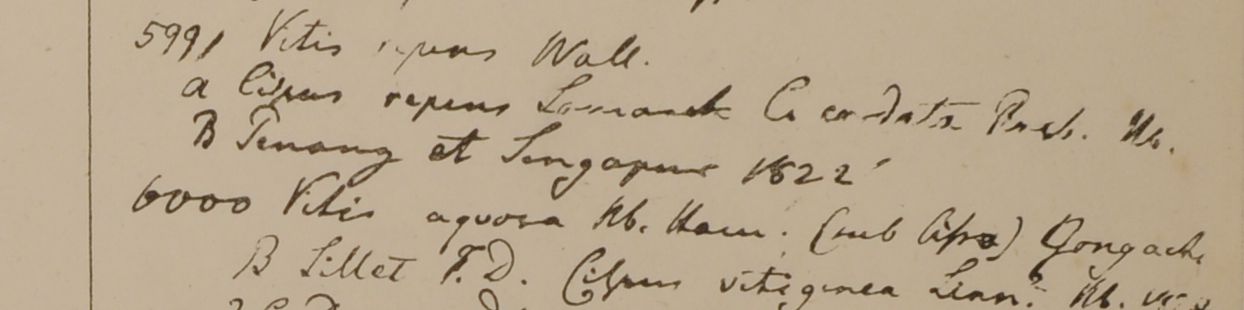 5991 Vitis repens Wall.
a Cissus repens Lamarck C. cordata Roxb. Hb.
B Penang et Singapur 1822
6000 Vitis aquosa Hb. Ham. (sub Cisso) Gongachi
B Sillet F.D. Cissus vitiginea Linn. Hb.